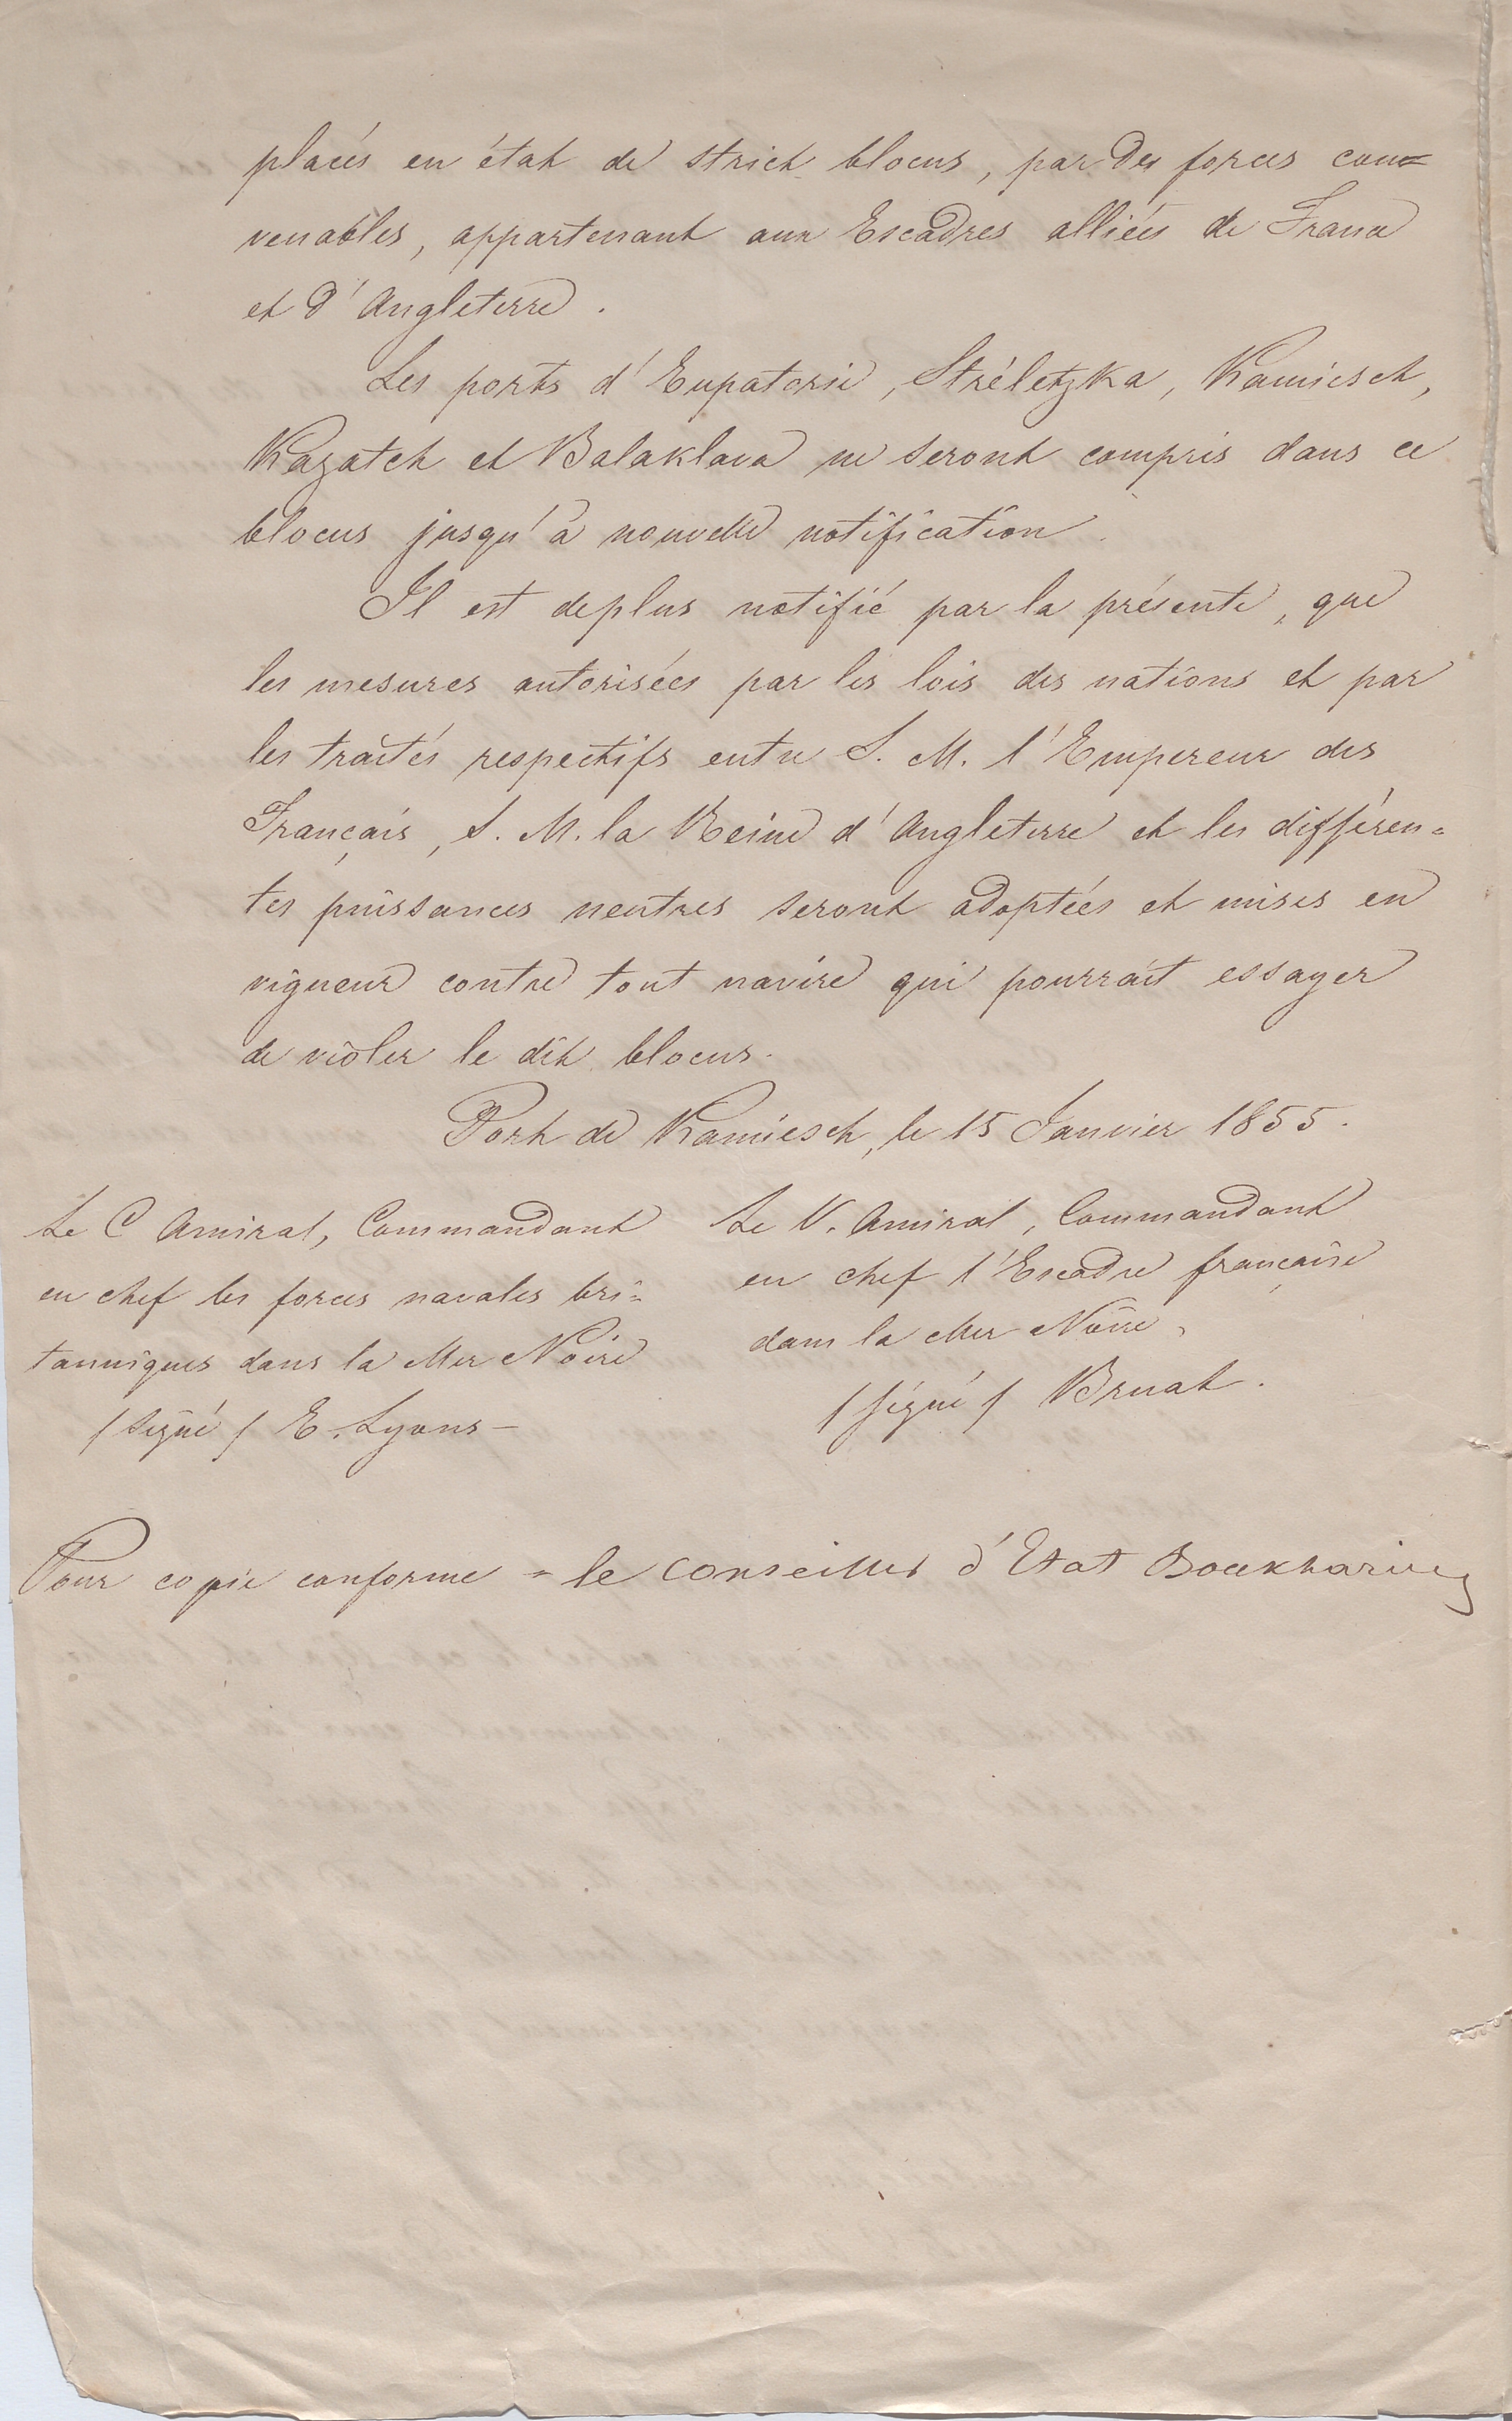 placés en état de strict blocus, par des forces con=
venables, appartenant aux Escadres alliées de France
et d'Angleterre.
Les ports d'Eupatorie, Stréletzka, Kamiesch,
Kazatch et Balaklava ne seront compris dans ce
blocus jusqu'à nouvelle notification.
Il est deplus notifié par la présente, que
les mesures autorisées par les lois des nations et par
les traités respectifs entre S. M. l'Empereur des
Français, S. M. la Reine d'Angleterre et les différen=
tes puissances neutres seront adoptées et mises en
vigueur contre tout navire qui pourrait essayer
de violer le dit blocus.
Port de Kamiesch, le 15 Janvier 1855.
Le C Amiral, Commandant
en chef les forces navales bri=
tanniques dans la Mer Noire
/signé/ E. Lyons –
Le V. Amiral, Commandant
en chef l'Escadre française
dans la Mer Noire,
/signé/ Bruat.
Pour copie conforme = le conseiller d'Etat